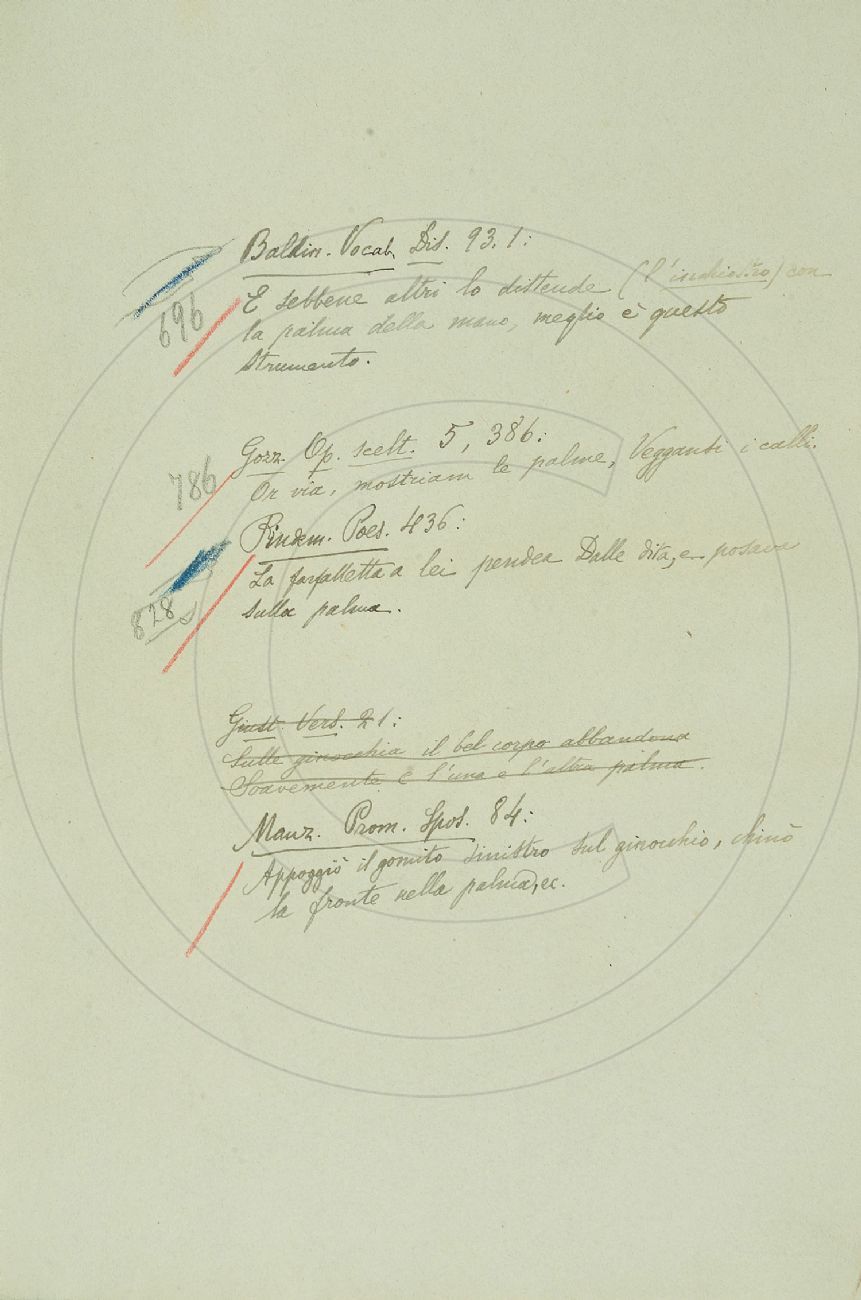 Baldin. Vocab. Dis. 93. 1:
E sebbene altri lo distende (l'inchiostro) con
696
la palma della mano, meglio è questo
strumento.
Gozz. Op. scelt. 5, 386:
786
Or via, mostriam le palme, Veggansi i calli.
Pindem. Poes. 436:
La farfalletta a lei pendea Dalle dita, e posava
828
sulla palma.
Giust. Vers. 21:
Sulle ginocchia il bel corpo abbandona
Soavemente E l'una e l'altra palma.
Manz. Prom. Spos. 84:
Appoggiò il gomito sinistro sul ginocchio, chinò
la fronte nella palma, ec.